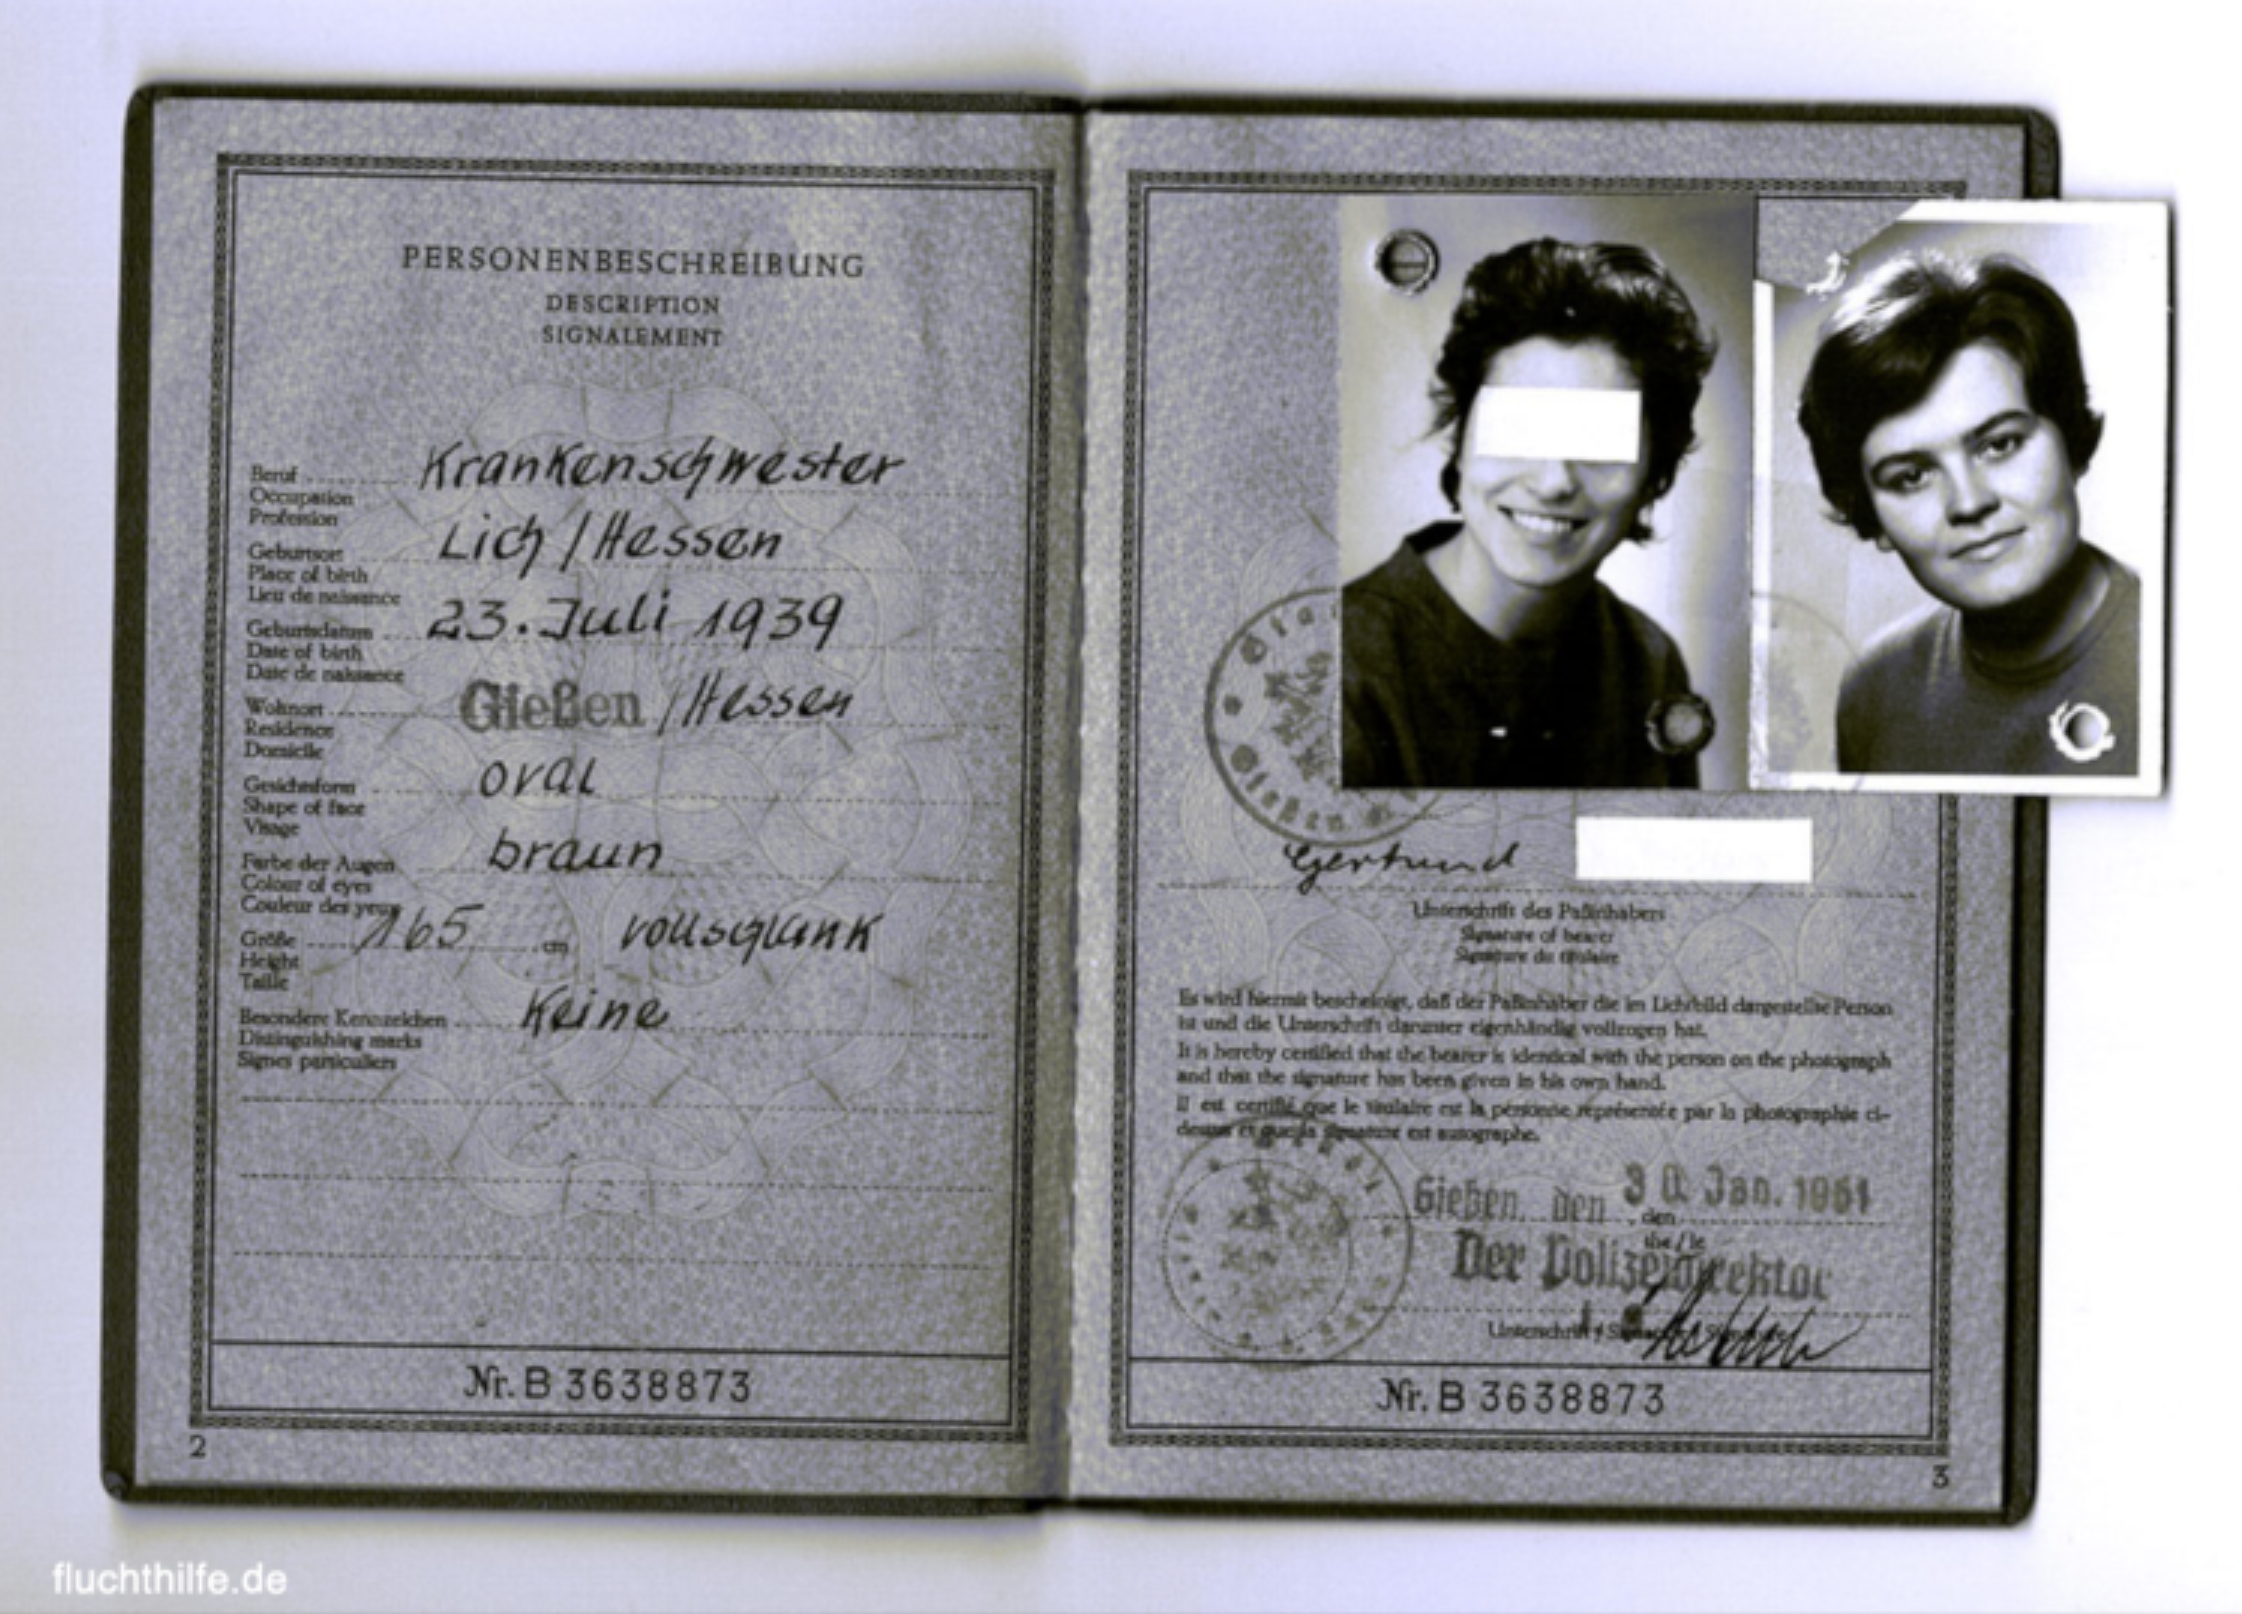 PERSONENBESCHREIBUNG
DESCRIPTION
SIGNALEMENT
Beruf Krankenschwester
Occupation
Profession
Geburtsort Lich / Hessen
Place of birth
Lieu de naissance
Geburtsdatum 23. Juli 1939
Date of birth
Date de naissance
Wohnort Gießen / Hessen
Residence
Domicile
Gesichtsform oval
Shape of face
Visage
Farbe der Augen braun
Colour of eyes
Couleur des yeux
Größe 165 cm vollschlank
Height
Taille
Besondere Kennzeichen Keine
Distinguishing marks
Signes particuliers
Nr. B 3638873
2
Gießen
Gertrund
Unterschrift des Paßinhabers
Signature of bearer
Signature du titulaire
Es wird hiermit bescheinigt, daß der Paßinhaber die im Lichtbild dargestellte Person
ist und die Unterschrift darunter eigenhändig vollzogen hat.
It is hereby certified that the bearer is identical with the person on the photograph
and that the signature has been given in his own hand.
Il est certifié que le titulaire est la personne représentée par la photographie ci-
dessus et que la signature est autographe.
Gießen, den 30. Jan. 1961
den
the / le
Der Polizeidirektor
Nr. B 3638873
3
fluchthilfe.de